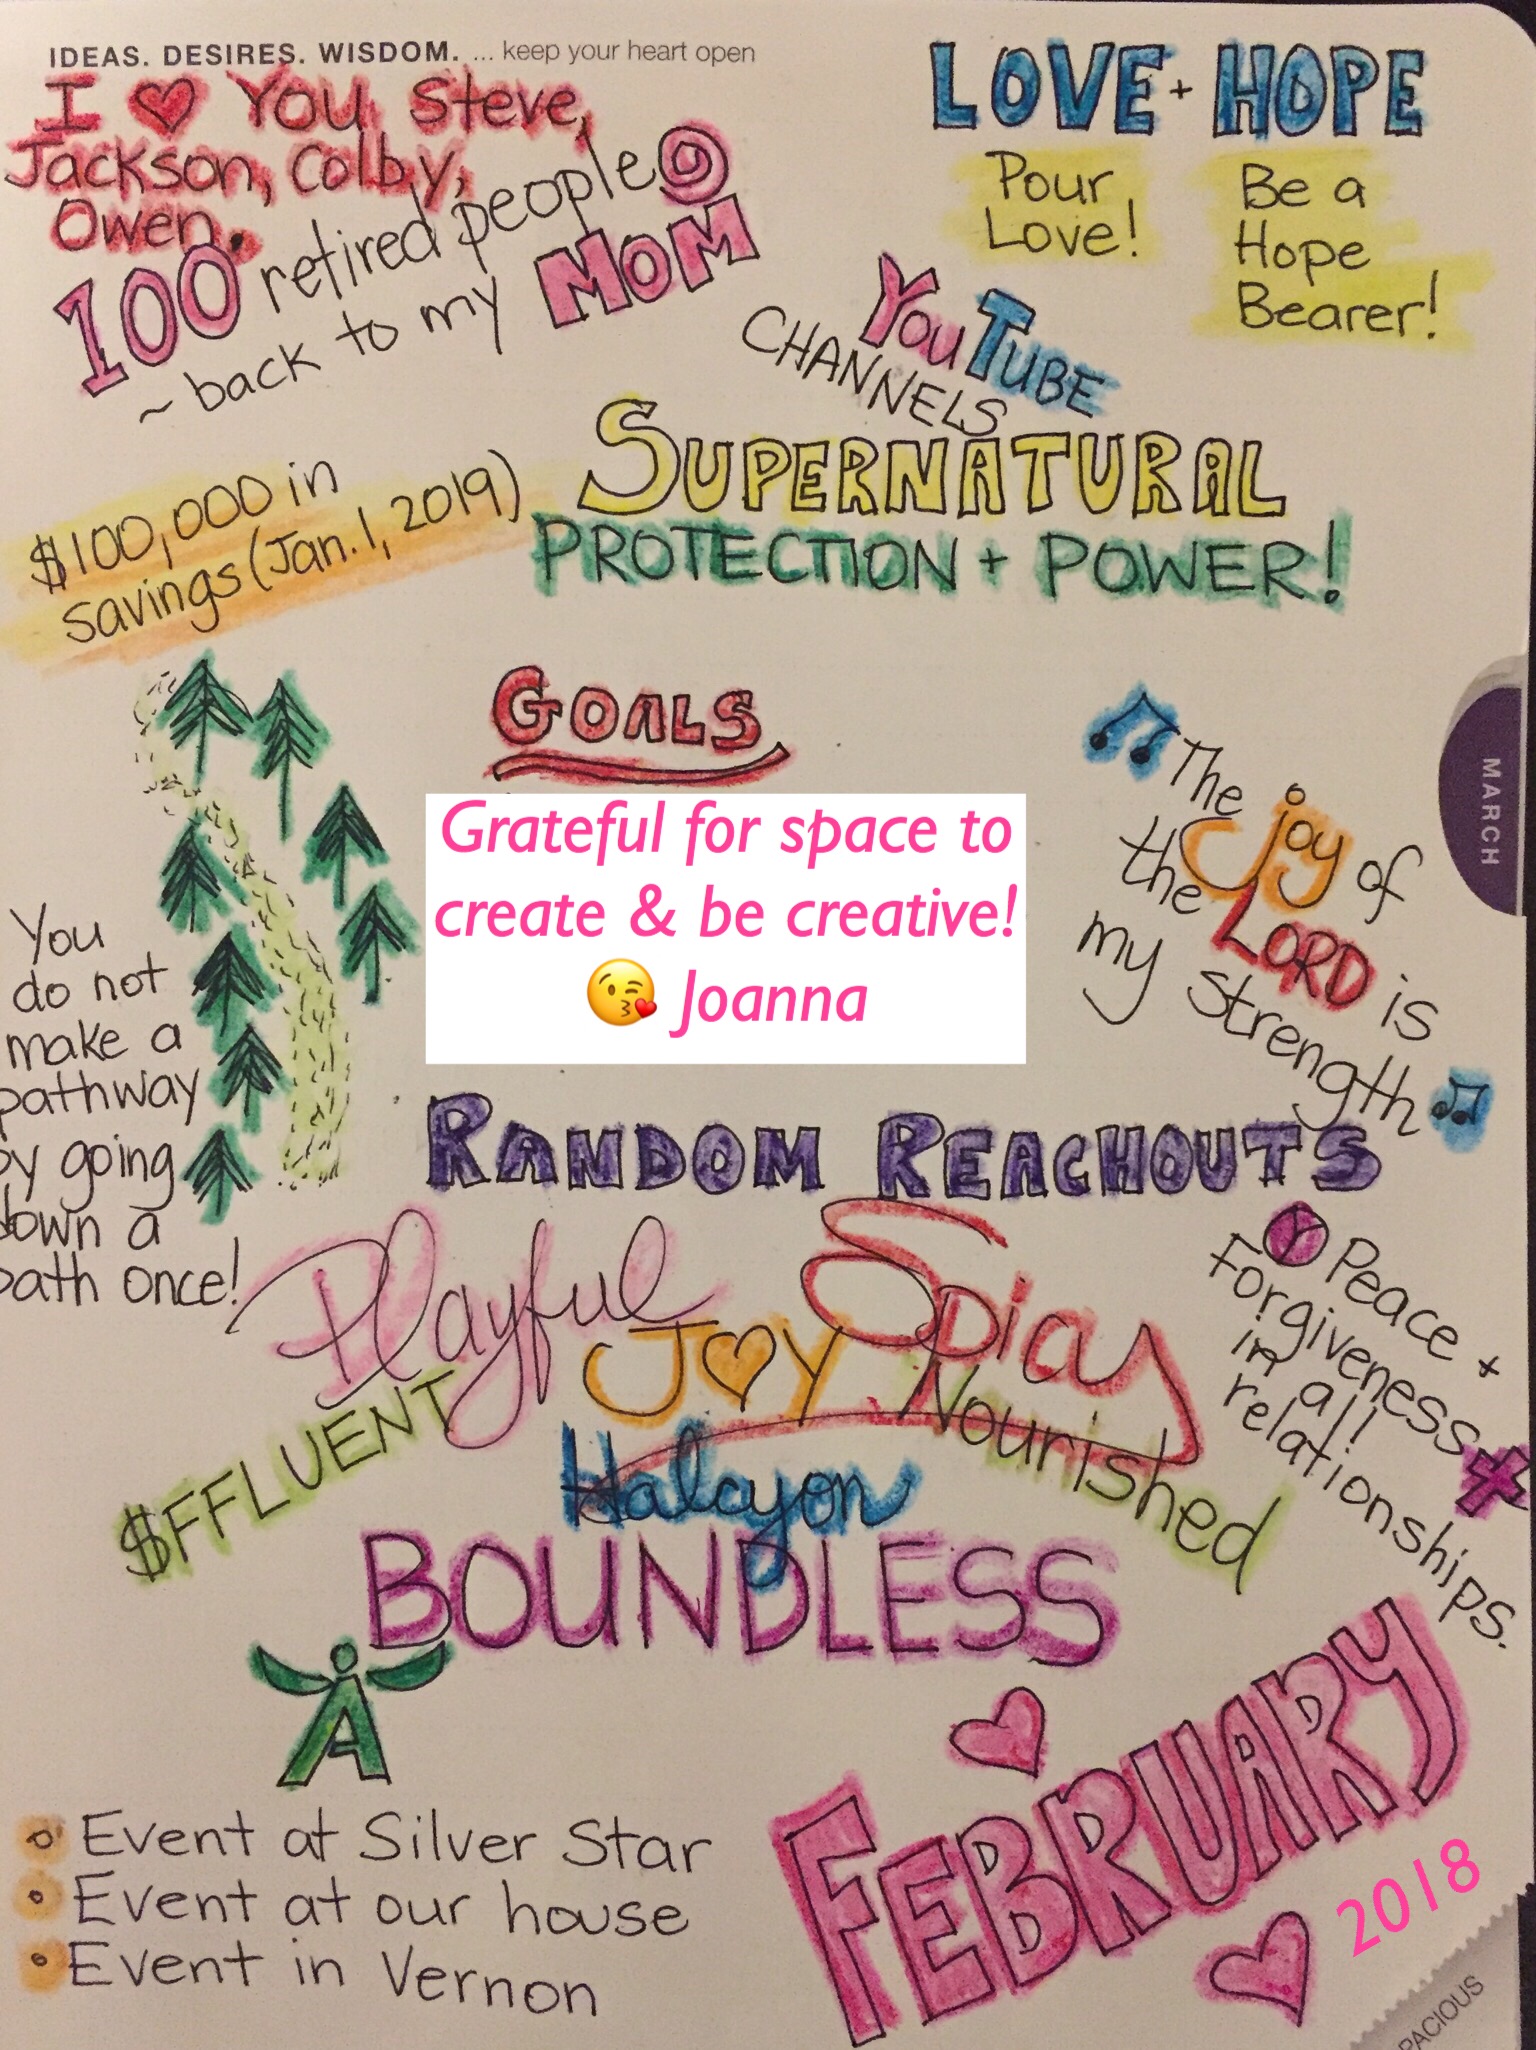 IDEAS. DESIRES. WISDOM. ... keep your heart open
I ❤ You Steve,
Jackson, Colby,
Owen.
100 retired people
~ back to my MOM
LOVE + HOPE
Pour
Love!
Be a
Hope
Bearer!
YouTUBE
CHANNELS
SUPERNATURAL
PROTECTION + POWER!
$100,000 in
savings (Jan. 1, 2019)
GOALS
Grateful for space to
create & be creative!
😘 Joanna
The joy of
the LORD is
my strength
MARCH
You
do not
make a
pathway
by going
down a
path once!
RANDOM REACHOUTS
Playful
Spicy
JOY
$FFLUENT
Nourished
Halcyon
BOUNDLESS
Peace +
Forgiveness
in all
relationships.
A
Event at Silver Star
Event at our house
Event in Vernon
FEBRUARY
2018
PACIOUS